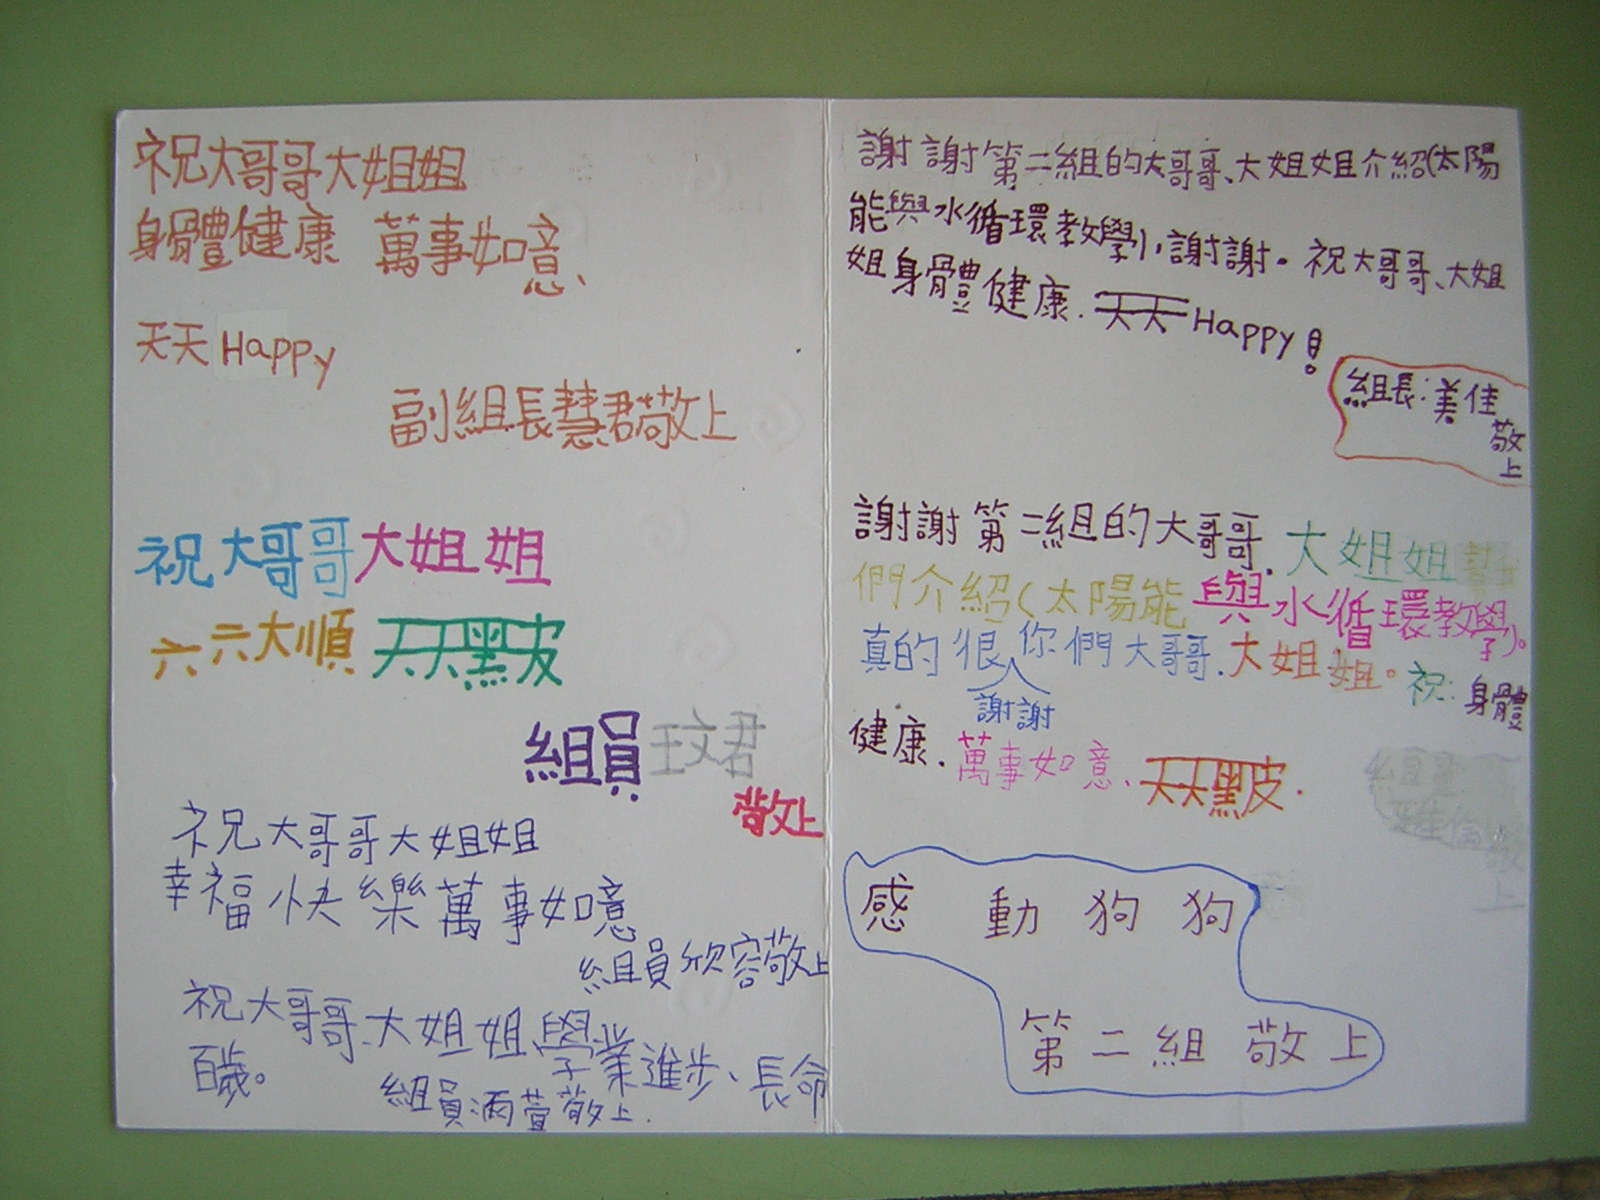 祝大哥哥大姐姐
身體健康 萬事如意、
天天Happy
副組長慧君敬上
祝大哥哥大姐姐
六六大順天天黑皮
組員玟君
敬上
祝大哥哥大姐姐
幸福快樂萬事如意
組員欣容敬上
祝大哥哥、大姐姐學業進步、長命
百歲。
組員涵萱敬上.
謝謝第二組的大哥哥、大姐姐介紹(太陽
能與水循環教學),謝謝。祝大哥哥、大姐
姐身體健康.天天Happy!
組長:美佳
敬
上
謝謝第二組的大哥哥.大姐姐
們介紹(太陽能與水循環教學)。
真的很你們大哥哥.大姐姐。祝:身體
謝謝
健康.萬事如意、天天黑皮.
感動狗狗
第二組敬上